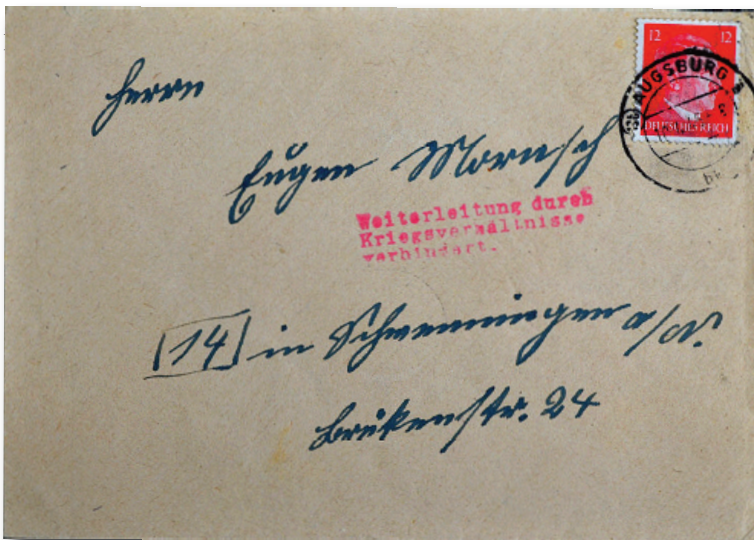 12 12
AUGSBURG
DEUTSCHES REICH
Herrn
Eugen
Weiterleitung durch
Kriegsverhältnisse
verhindert.
(14) in Schwenningen a/N.
Brükenstr. 24